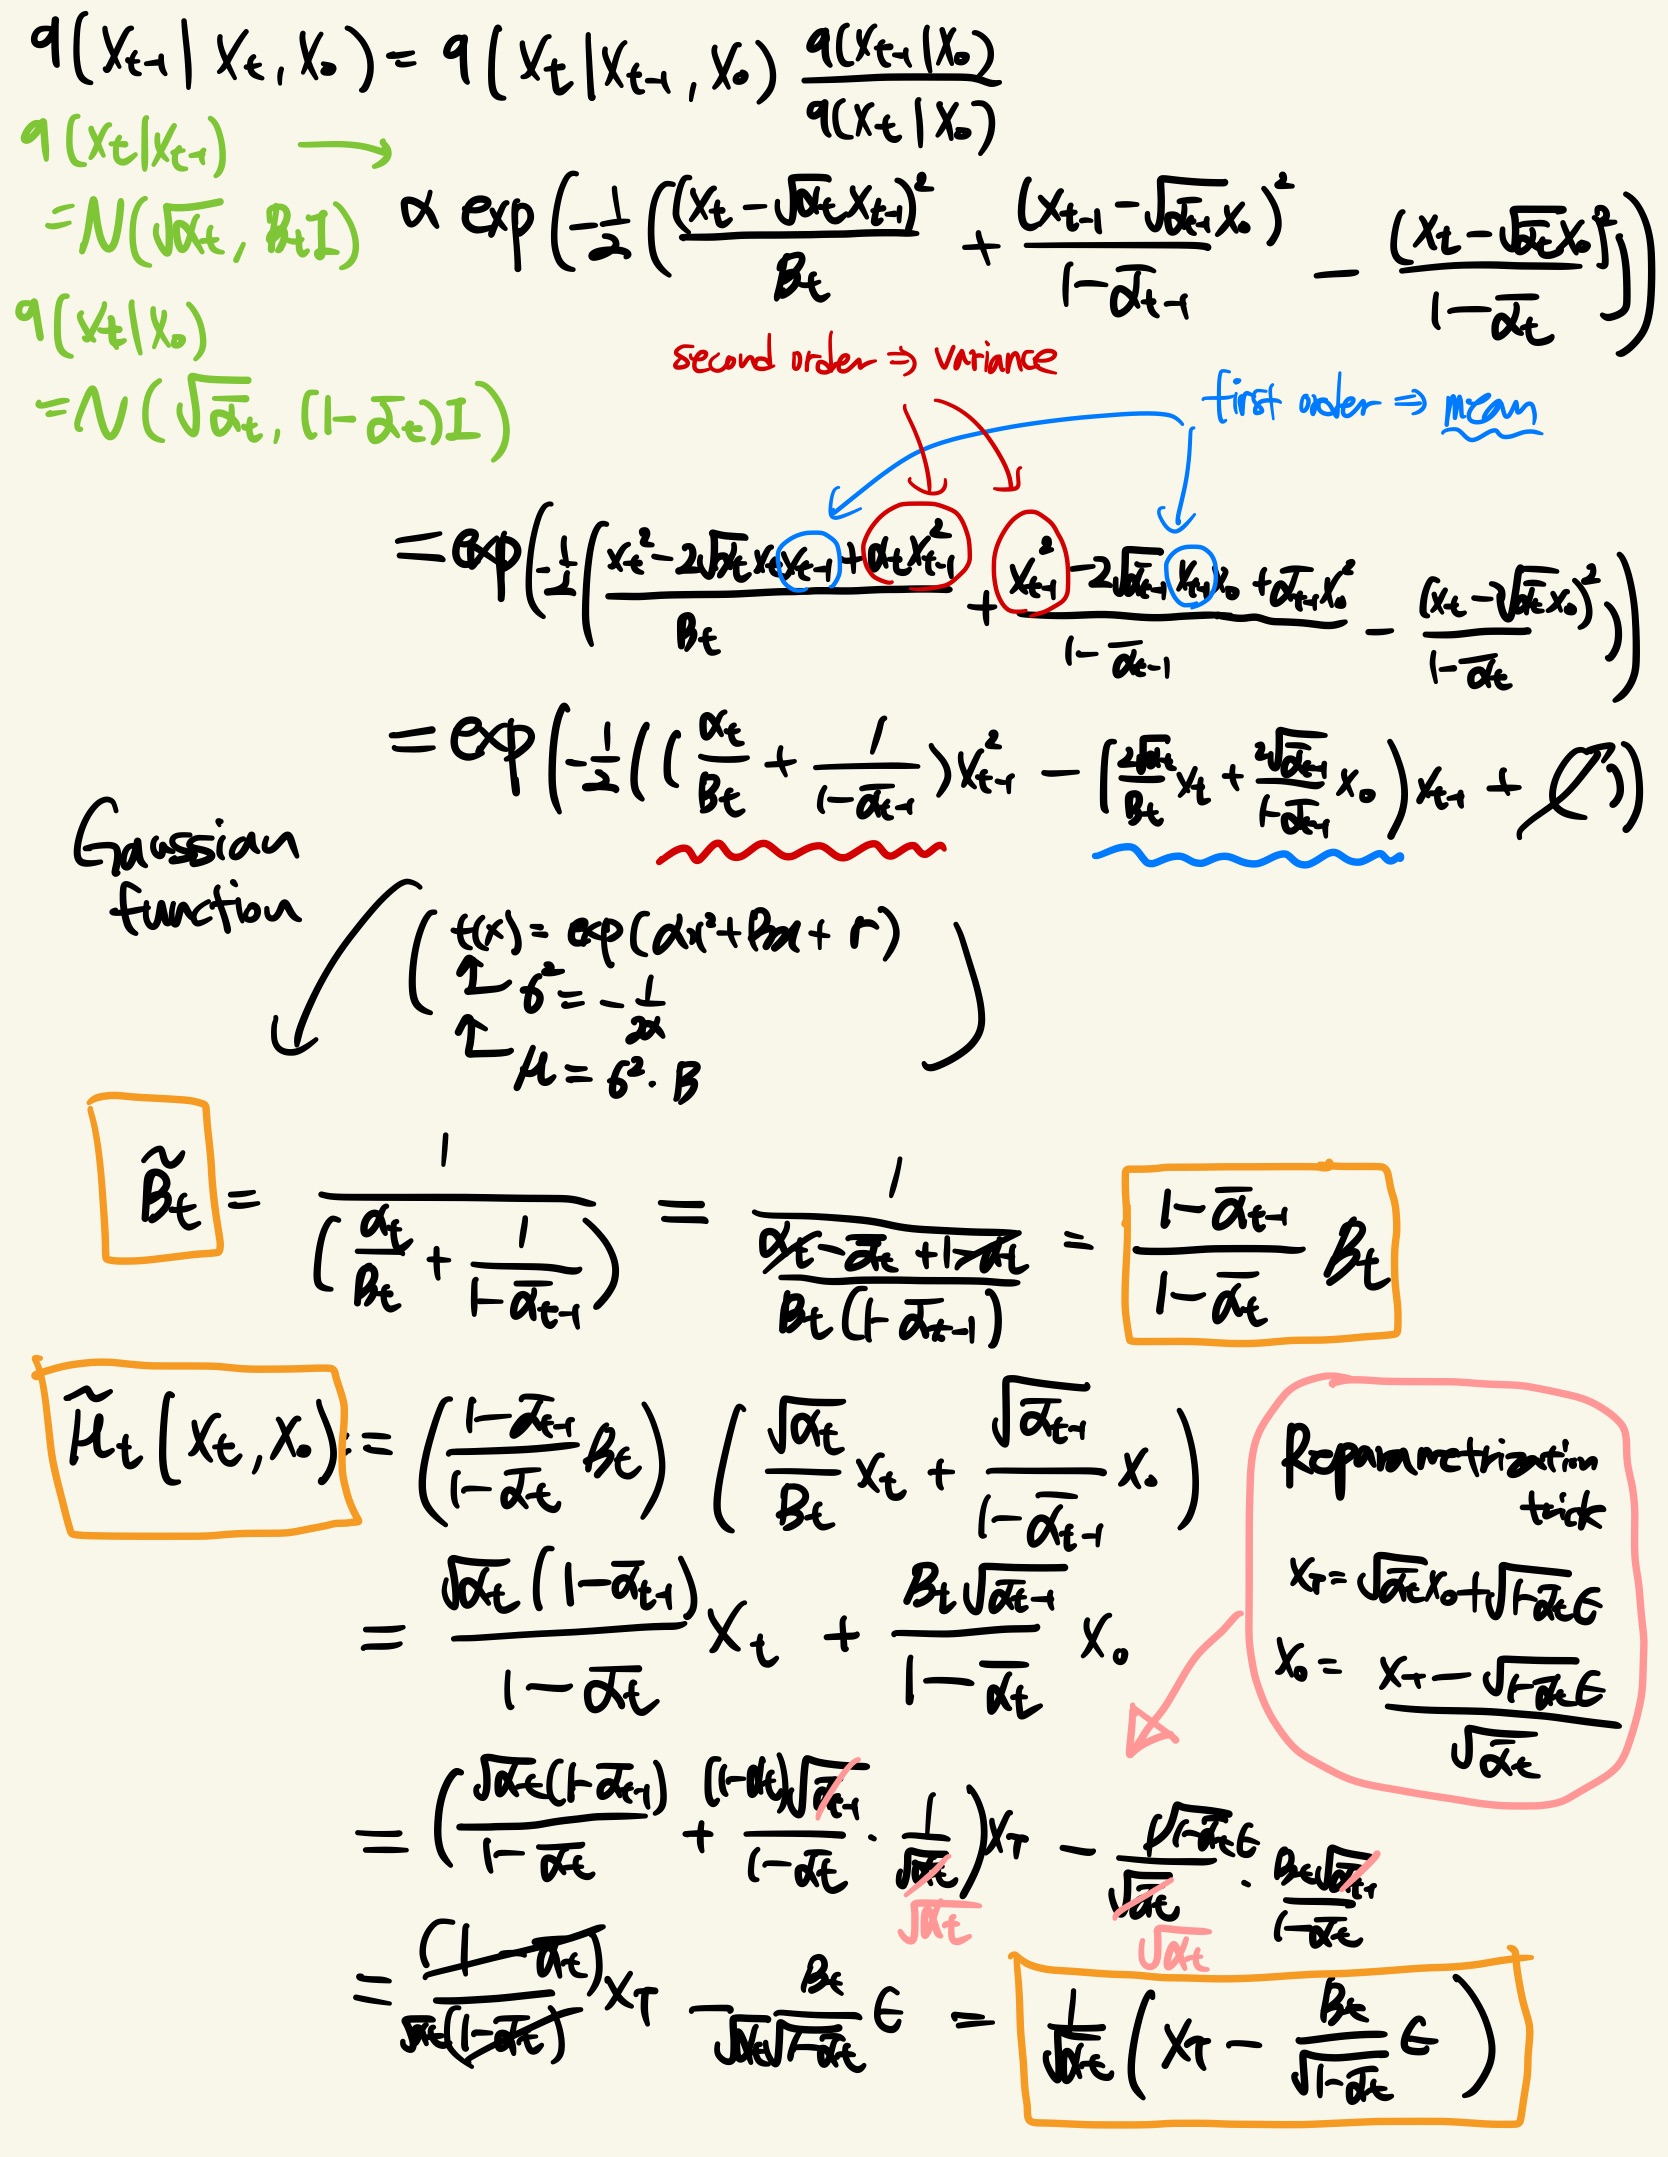 q(x_{t-1} | x_t, x_0) = q(x_t | x_{t-1}, x_0) \frac{q(x_{t-1}|x_0)}{q(x_t|x_0)}
q(x_t|x_{t-1}) →
= N(\sqrt{α_t}, β_t I)
∝ exp(-\frac{1}{2}(\frac{(x_t - \sqrt{α_t}x_{t-1})^2}{β_t} + \frac{(x_{t-1} - \sqrt{\bar{α}_{t-1}}x_0)^2}{1-\bar{α}_{t-1}} - \frac{(x_t - \sqrt{\bar{α}_t}x_0)^2}{1-\bar{α}_t}))
q(x_t|x_0)
= N(\sqrt{\bar{α}_t}, (1-\bar{α}_t)I)
second order ⇒ variance
first order ⇒ mean
= exp(-\frac{1}{2}(\frac{x_t^2 - 2\sqrt{α_t}x_t x_{t-1} + α_t x_{t-1}^2}{β_t} + \frac{x_{t-1}^2 - 2\sqrt{\bar{α}_{t-1}}x_{t-1}x_0 + \bar{α}_{t-1}x_0^2}{1-\bar{α}_{t-1}} - \frac{(x_t - \sqrt{\bar{α}_t}x_0)^2}{1-\bar{α}_t}))
= exp(-\frac{1}{2}((\frac{α_t}{β_t} + \frac{1}{1-\bar{α}_{t-1}})x_{t-1}^2 - (\frac{2\sqrt{α_t}}{β_t}x_t + \frac{2\sqrt{\bar{α}_{t-1}}}{1-\bar{α}_{t-1}}x_0)x_{t-1} + C))
Gaussian
function
(f(x) = exp(αx^2 + βx + r)
σ^2 = -\frac{1}{2α}
μ = σ^2 · β)
\tilde{β}_t = \frac{1}{(\frac{α_t}{β_t} + \frac{1}{1-\bar{α}_{t-1}})} = \frac{1}{\frac{α_t - \bar{α}_t + 1 - α_t}{β_t(1-\bar{α}_{t-1})}} = \frac{1-\bar{α}_{t-1}}{1-\bar{α}_t} β_t
\tilde{μ}_t(x_t, x_0) = (\frac{1-\bar{α}_{t-1}}{1-\bar{α}_t} β_t)(\frac{\sqrt{α_t}}{β_t}x_t + \frac{\sqrt{\bar{α}_{t-1}}}{1-\bar{α}_{t-1}}x_0)
Reparametrization
trick
x_T = \sqrt{\bar{α}_t}x_0 + \sqrt{1-\bar{α}_t}ϵ
x_0 = \frac{x_T - \sqrt{1-\bar{α}_t}ϵ}{\sqrt{\bar{α}_t}}
= \frac{\sqrt{α_t}(1-\bar{α}_{t-1})}{1-\bar{α}_t}x_t + \frac{β_t\sqrt{\bar{α}_{t-1}}}{1-\bar{α}_t}x_0
= (\frac{\sqrt{α_t}(1-\bar{α}_{t-1})}{1-\bar{α}_t} + \frac{(1-α_t)\sqrt{\bar{α}_{t-1}}}{1-\bar{α}_t} · \frac{1}{\sqrt{\bar{α}_t}})x_T - \frac{\sqrt{1-\bar{α}_t}ϵ}{\sqrt{\bar{α}_t}} · \frac{β_t\sqrt{\bar{α}_{t-1}}}{1-\bar{α}_t}
\sqrt{α_t}
\sqrt{α_t}
= \frac{(1-\bar{α}_t)}{\sqrt{α_t}(1-\bar{α}_t)}x_T - \frac{β_t}{\sqrt{α_t}\sqrt{1-\bar{α}_t}}ϵ = \frac{1}{\sqrt{α_t}}(x_T - \frac{β_t}{\sqrt{1-\bar{α}_t}}ϵ)